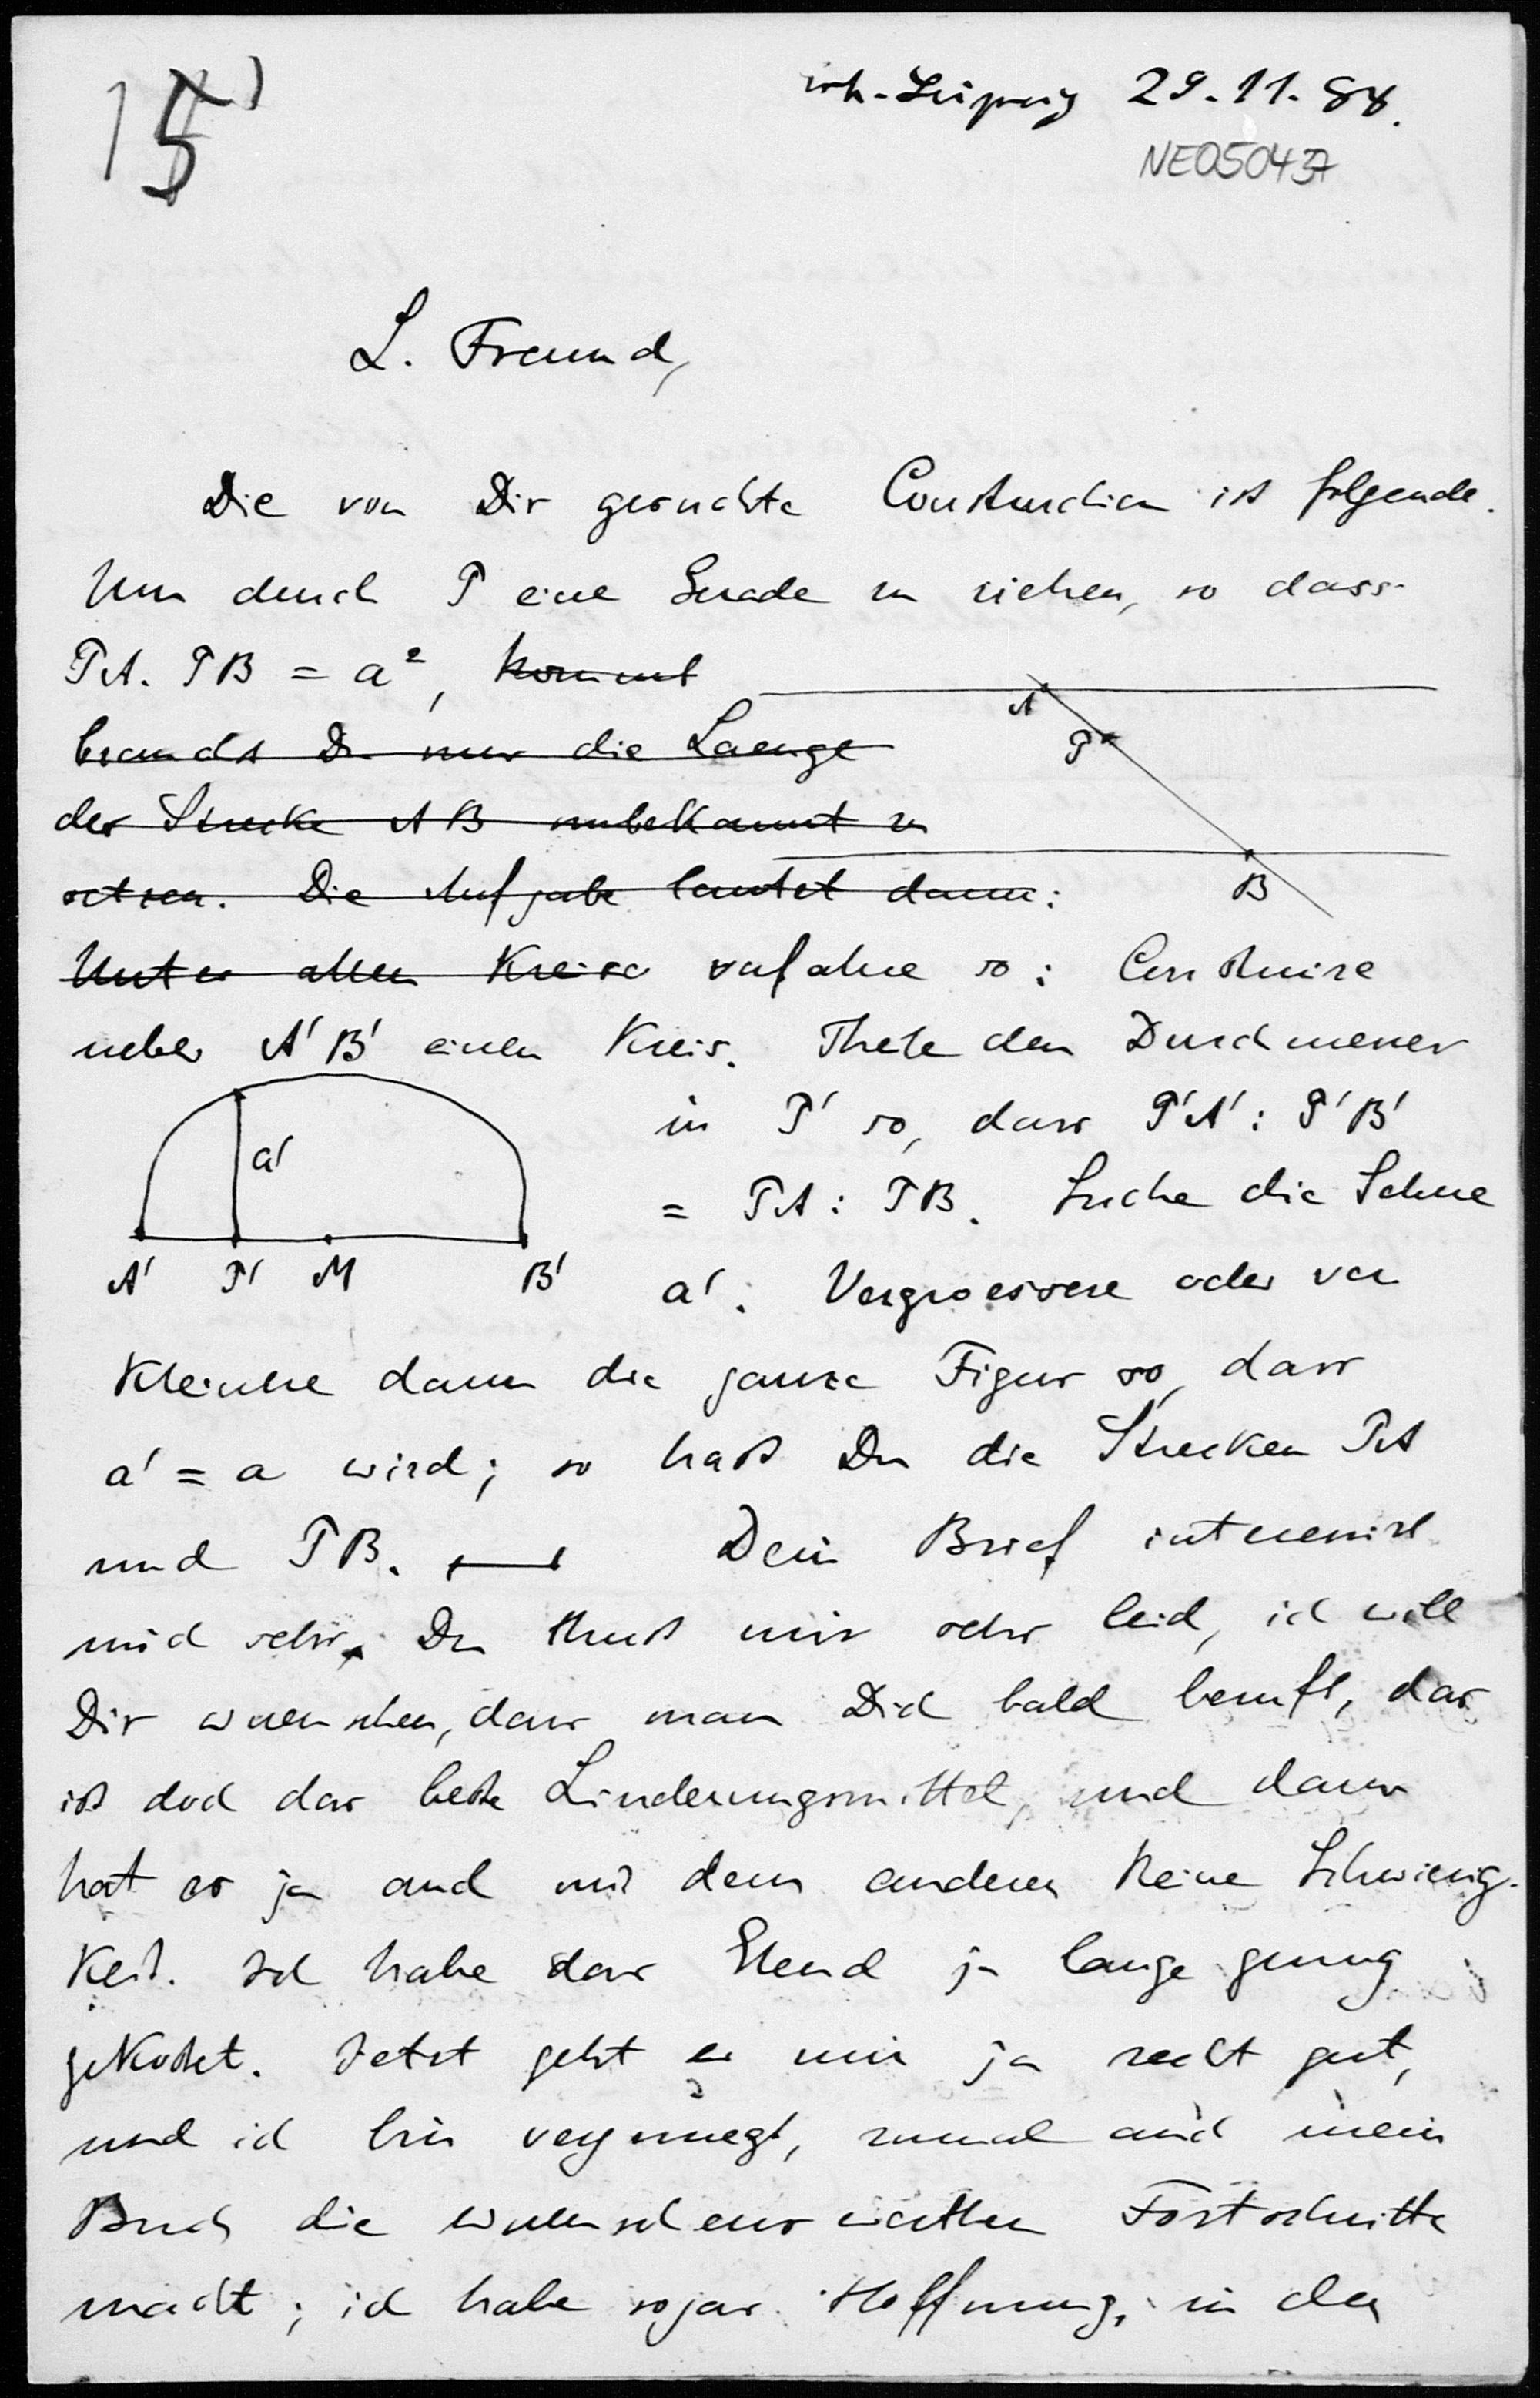 15)
Leipzig 29.11.88.
NE05043
L. Freund,
Die von Dir gesuchte Construction ist folgende.
Um durch P eine Gerade zu ziehen, so dass
PA. PB = a², kommt
brauchst Du nur die Laenge
der Strecke AB unbekannt zu
setzen. Die Aufgabe lautet dann:
Unter allen Kreise verfahre so: Construire
ueber A'B' einen Kreis. Theile den Durchmesser
in P' so, dass P'A' : P'B'
= PA : PB. Suche die Sehne
a'. Vergroessere oder ver
kleinere dann die ganze Figur so, dass
a' = a wird; so hast Du die Strecken PA
und PB. — Dein Brief interessirt
mich sehr. Du thust mir sehr leid, ich will
Dir wuenschen, dass man Dich bald beruft, das
ist doch das beste Linderungsmittel, und dann
hat es ja auch mit dem anderen keine Schwierig-
keit. Ich habe das Elend ja lange genug
gekostet. Jetzt geht es mir ja recht gut,
und ich bin vergnuegt, zumal auch mein
Buch die wuenschenswerthen Fortschritte
macht; ich habe sogar Hoffnung, in der
A
P
B
a'
A' P' M B'